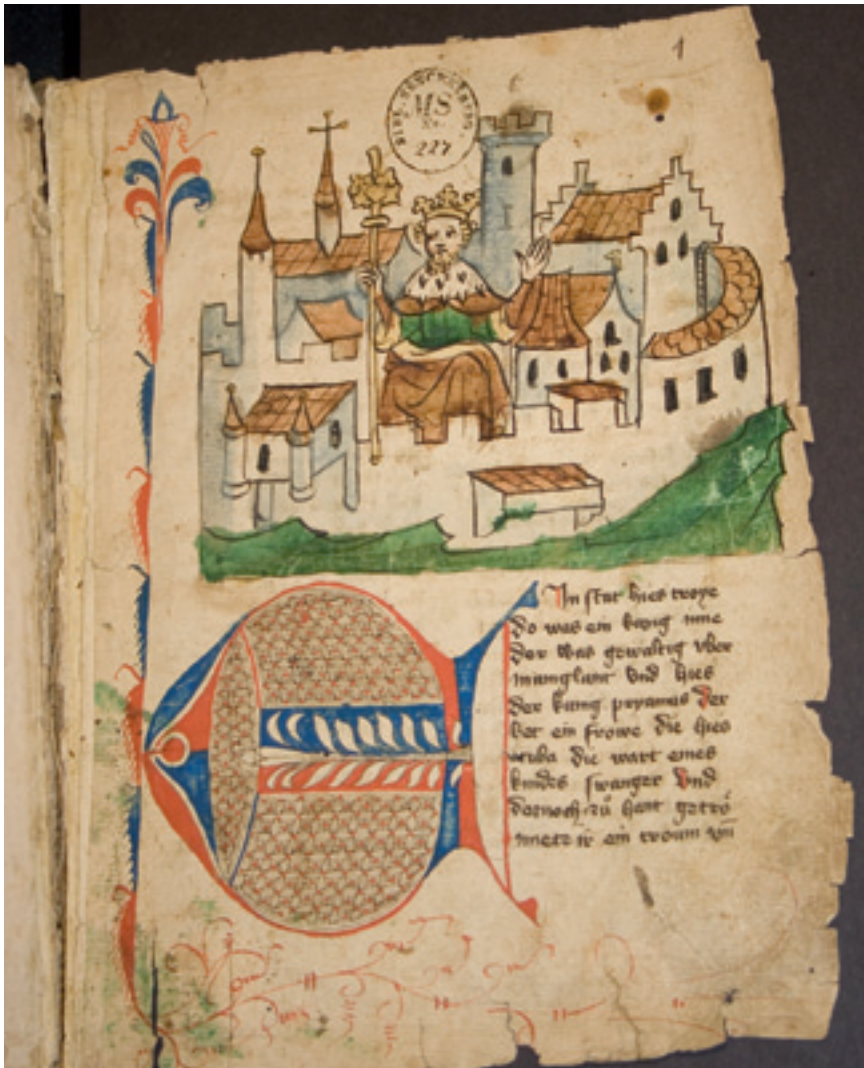 1
MS
227
E
In stat hies troye
do was ein kunig inne
der was gewaltig vber
manglant vnd hies
der kunig pryamus Der
het ein frowe die hies
die wart eines
kindes swanger Vnd
dornoch zů hant getrǒ
mete ir ein troum